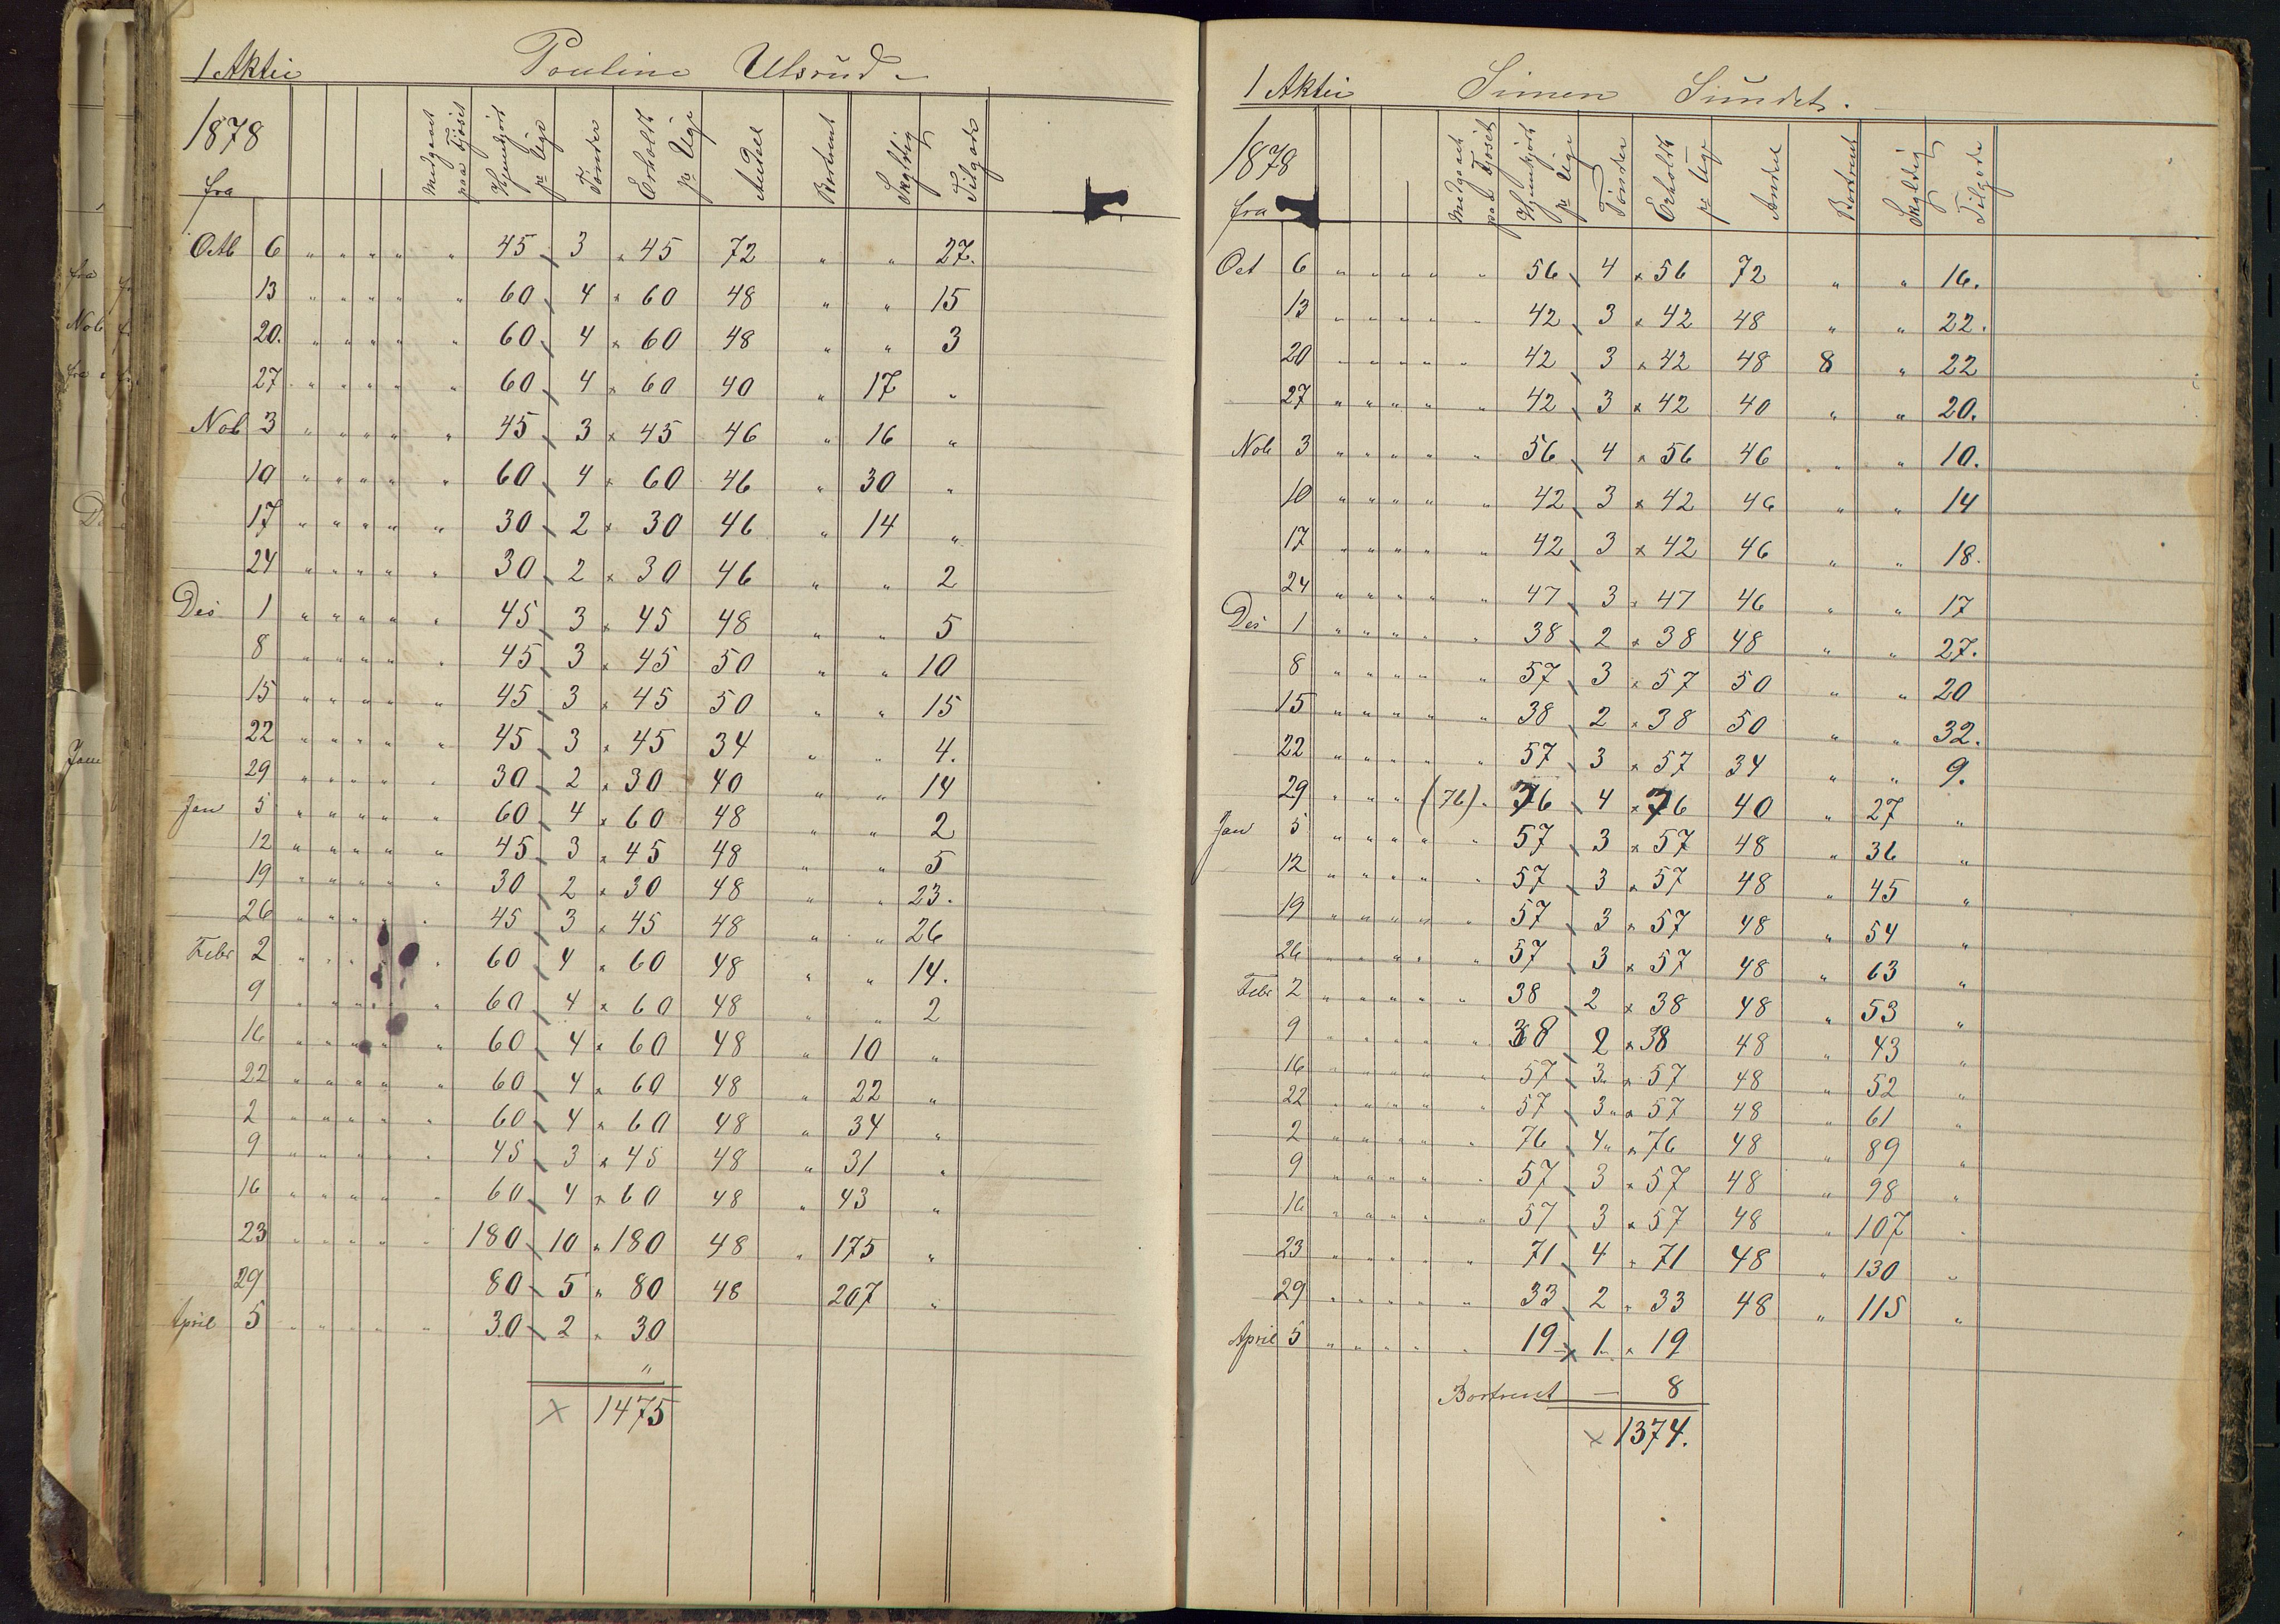 1 Aktie Pouline Ulsrud
1878
fra
Medgaaet paa Fjöset
Hjemkjört pr Uge
Tönder
Erholdt pr Uge
Andel
Bortrent
Skyldig
Tilgode
Octb 6 " " " " " 45 3 " 45 72 " " 27.
13 " " " " " 60 4 " 60 48 " " 15
20. " " " " " 60 4 " 60 48 " " 3
27 " " " " " 60 4 " 60 40 " 17 "
Nob 3 " " " " " 45 3 " 45 46 " 16 "
10 " " " " " 60 4 " 60 46 " 30 "
17 " " " " " 30 2 " 30 46 " 14 "
24 " " " " " 30 2 " 30 46 " " 2
Des 1 " " " " " 45 3 " 45 48 " " 5
8 " " " " " 45 3 " 45 50 " " 10
15 " " " " " 45 3 " 45 50 " " 15
22 " " " " " 45 3 " 45 34 " " 4.
29 " " " " " 30 2 " 30 40 " " 14
Jan 5 " " " " " 60 4 " 60 48 " " 2
12 " " " " " 45 3 " 45 48 " " 5
19 " " " " " 30 2 " 30 48 " " 23.
26 " " " " " 45 3 " 45 48 " " 26
Febr 2 " " " " " 60 4 " 60 48 " " 14.
9 " " " " " 60 4 " 60 48 " " 2
16 " " " " " 60 4 " 60 48 " 10 "
22 " " " " " 60 4 " 60 48 " 22 "
2 " " " " " 60 4 " 60 48 " 34 "
9 " " " " " 45 3 " 45 48 " 31 "
16 " " " " " 60 4 " 60 48 " 43 "
23 " " " " " 180 10 " 180 48 " 175 "
29 80 5 " 80 48 207 "
April 5 " " " " " 30 2 " 30
"
x 1475
1 Aktie Simen Sundet.
1878
fra
Medgaaet paa Fjöset
Hjemkjört pr Uge
Tönder
Erholdt pr Uge
Andel
Bortrent
Skyldig
Tilgode
Oct 6 " " " " " 56 4 " 56 72 " " 16.
13 " " " " " 42 3 " 42 48 " " 22.
20 " " " " " 42 3 " 42 48 8 " 22
27 " " " " " 42 3 " 42 40 " " 20.
Nob 3 " " " " " 56 4 " 56 46 " " 10.
10 " " " " " 42 3 " 42 46 " " 14
17 " " " " " 42 3 " 42 46 " " 18.
24 " " " " " 47 3 " 47 46 " " 17
Des 1 " " " " " 38 2 " 38 48 " " 27.
8 " " " " " 57 3 " 57 50 " " 20
15 " " " " " 38 2 " 38 50 " " 32.
22 " " " " " 57 3 " 57 34 " " 9.
29 " " " (76) " 76 4 " 76 40 " 27 "
Jan 5 " " " " " 57 3 " 57 48 " 36 "
12 " " " " " 57 3 " 57 48 " 45 "
19 " " " " " 57 3 " 57 48 " 54 "
26 " " " " " 57 3 " 57 48 " 63 "
Febr 2 " " " " " 38 2 " 38 48 " 53 "
9 " " " " " 38 2 " 38 48 " 43 "
16 " " " " " 57 3 " 57 48 " 52 "
22 " " " " " 57 3 " 57 48 " 61 "
2 " " " " " 76 4 " 76 48 " 89 "
9 " " " " " 57 3 " 57 48 " 98 "
16 " " " " " 57 3 " 57 48 " 107 "
23 " " " " " 71 4 " 71 48 " 130 "
29 " " " " " 33 2 " 33 48 " 115 "
April 5 " " " " " 19 1 " 19
Bortrent — 8
x 1374.